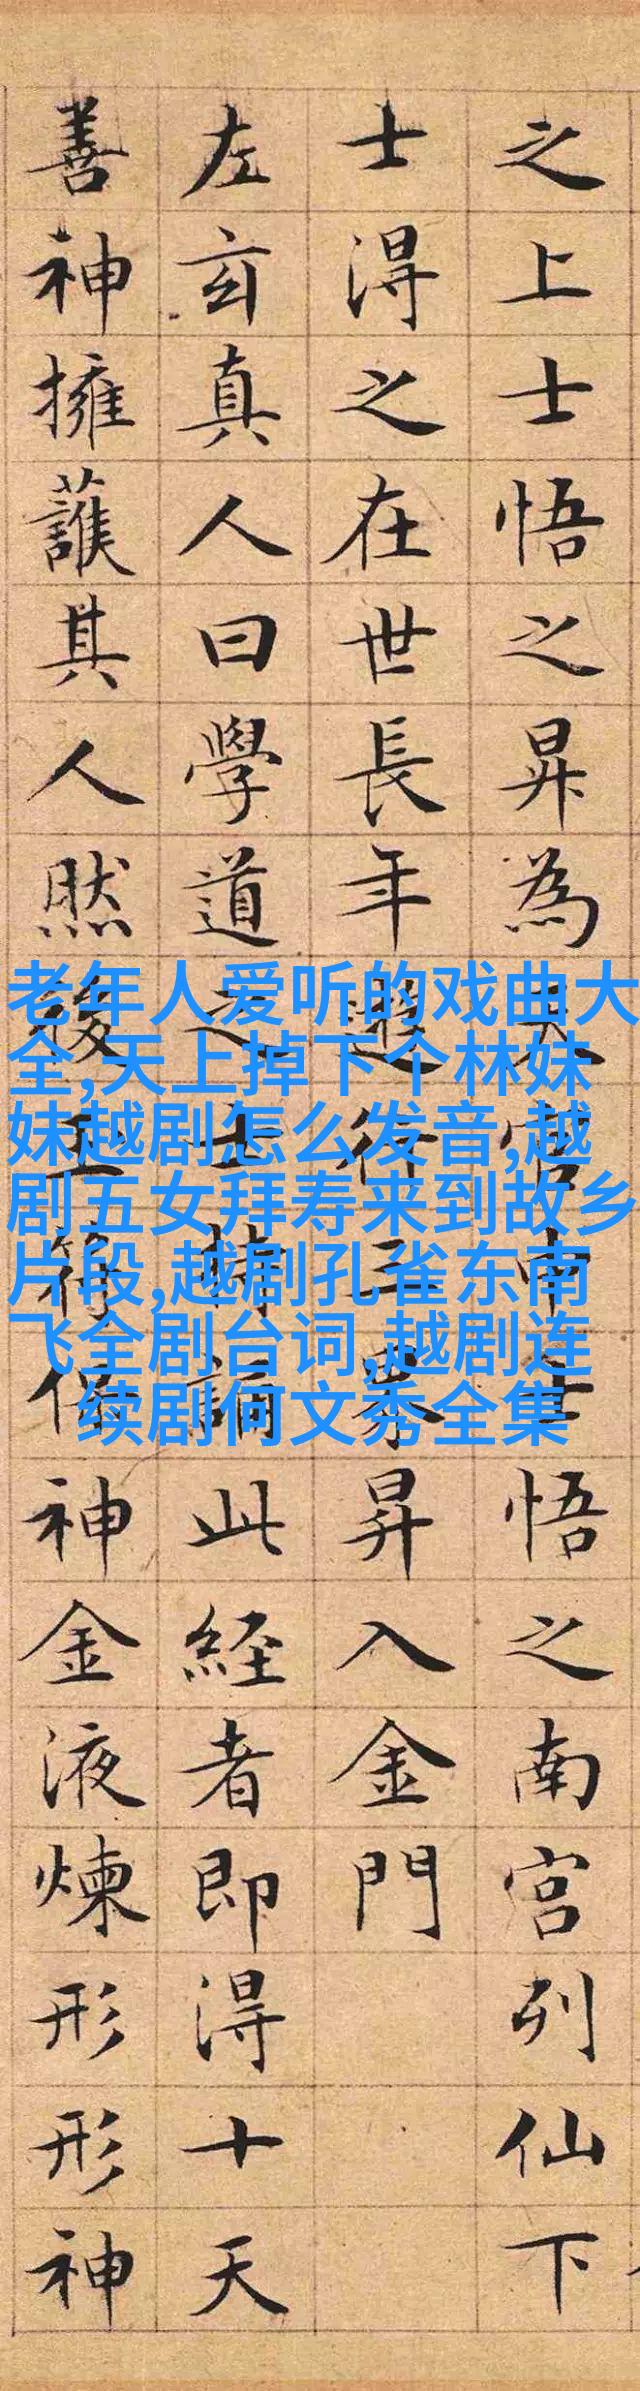 之上士悟之昇為天官中士悟之南宮列仙下
士淂之在世長年遊行三界昇入金門
左玄真人曰學道之士持誦此經者即淂十天
善神擁護其人然後玉符保神金液煉形形神
老年人爱听的戏曲大
全,天上掉下个林妹
妹越剧怎么发音,越
剧五女拜寿来到故乡
片段,越剧孔雀东南
飞全剧台词,越剧连
续剧何文秀全集